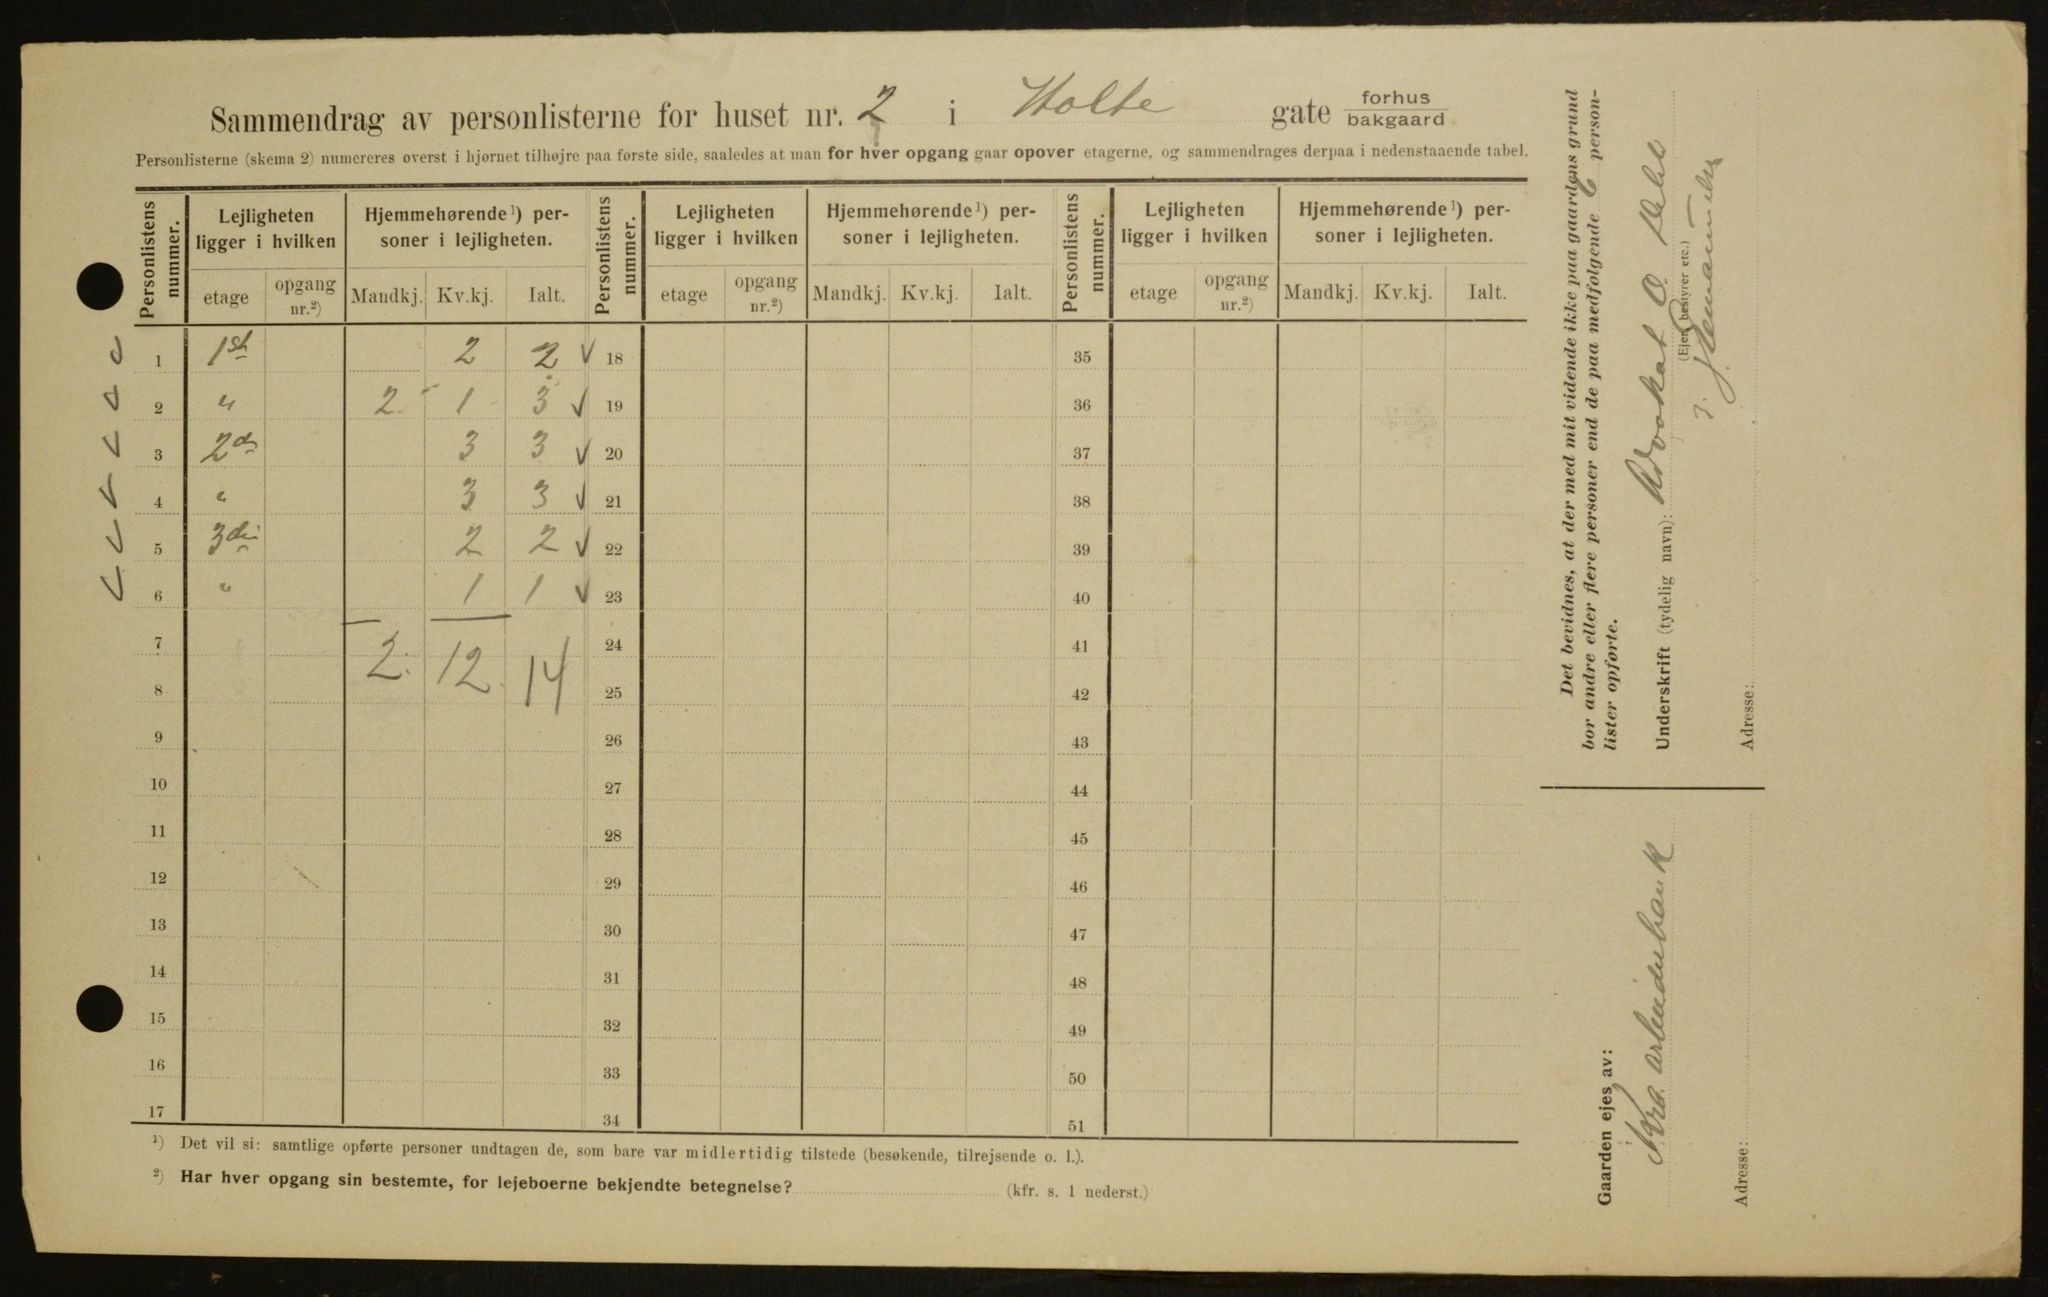 Sammendrag av personlisterne for huset nr. 2 i Holte gate forhus bakgaard
Personlisterne (skema 2) numereres øverst i hjørnet tilhøjre paa første side, saaledes at man for hver opgang gaar opover etagerne, og sammendrages derpaa i nedenstaaende tabel.
Personlistens nummer. Lejligheten ligger i hvilken Hjemmehørende¹) personer i lejligheten. Personlistens nummer. Lejligheten ligger i hvilken Hjemmehørende¹) personer i lejligheten. Personlistens nummer. Lejligheten ligger i hvilken Hjemmehørende¹) personer i lejligheten.
etage opgang nr.²) Mandkj. Kv.kj. Ialt. etage opgang nr.²) Mandkj. Kv.kj. Ialt. etage opgang nr.²) Mandkj. Kv.kj. Ialt.
1 1st 2 2 18 35
2 " 2 1 3 19 36
3 2den 3 3 20 37
4 " 3 3 21 38
5 3die 2 2 22 39
6 " 1 1 23 40
7 2. 12. 14 24 41
8 25 42
9 26 43
10 27 44
11 28 45
12 29 46
13 30 47
14 31 48
15 32 49
16 33 50
17 34 51
¹) Det vil si: samtlige opførte personer undtagen de, som bare var midlertidig tilstede (besøkende, tilrejsende o. l.).
²) Har hver opgang sin bestemte, for lejeboerne bekjendte betegnelse? (kfr. s. 1 nederst.)
Det bevidnes, at der med mit vidende ikke paa gaardens grund
bor andre eller flere personer end de paa medfølgende 6 person-
lister opførte.
Underskrift (tydelig navn): Advokat O.
(Ejer, bestyrer etc.)
Adresse:
Gaarden ejes av:
Kra. Arbeiderbank
Adresse: